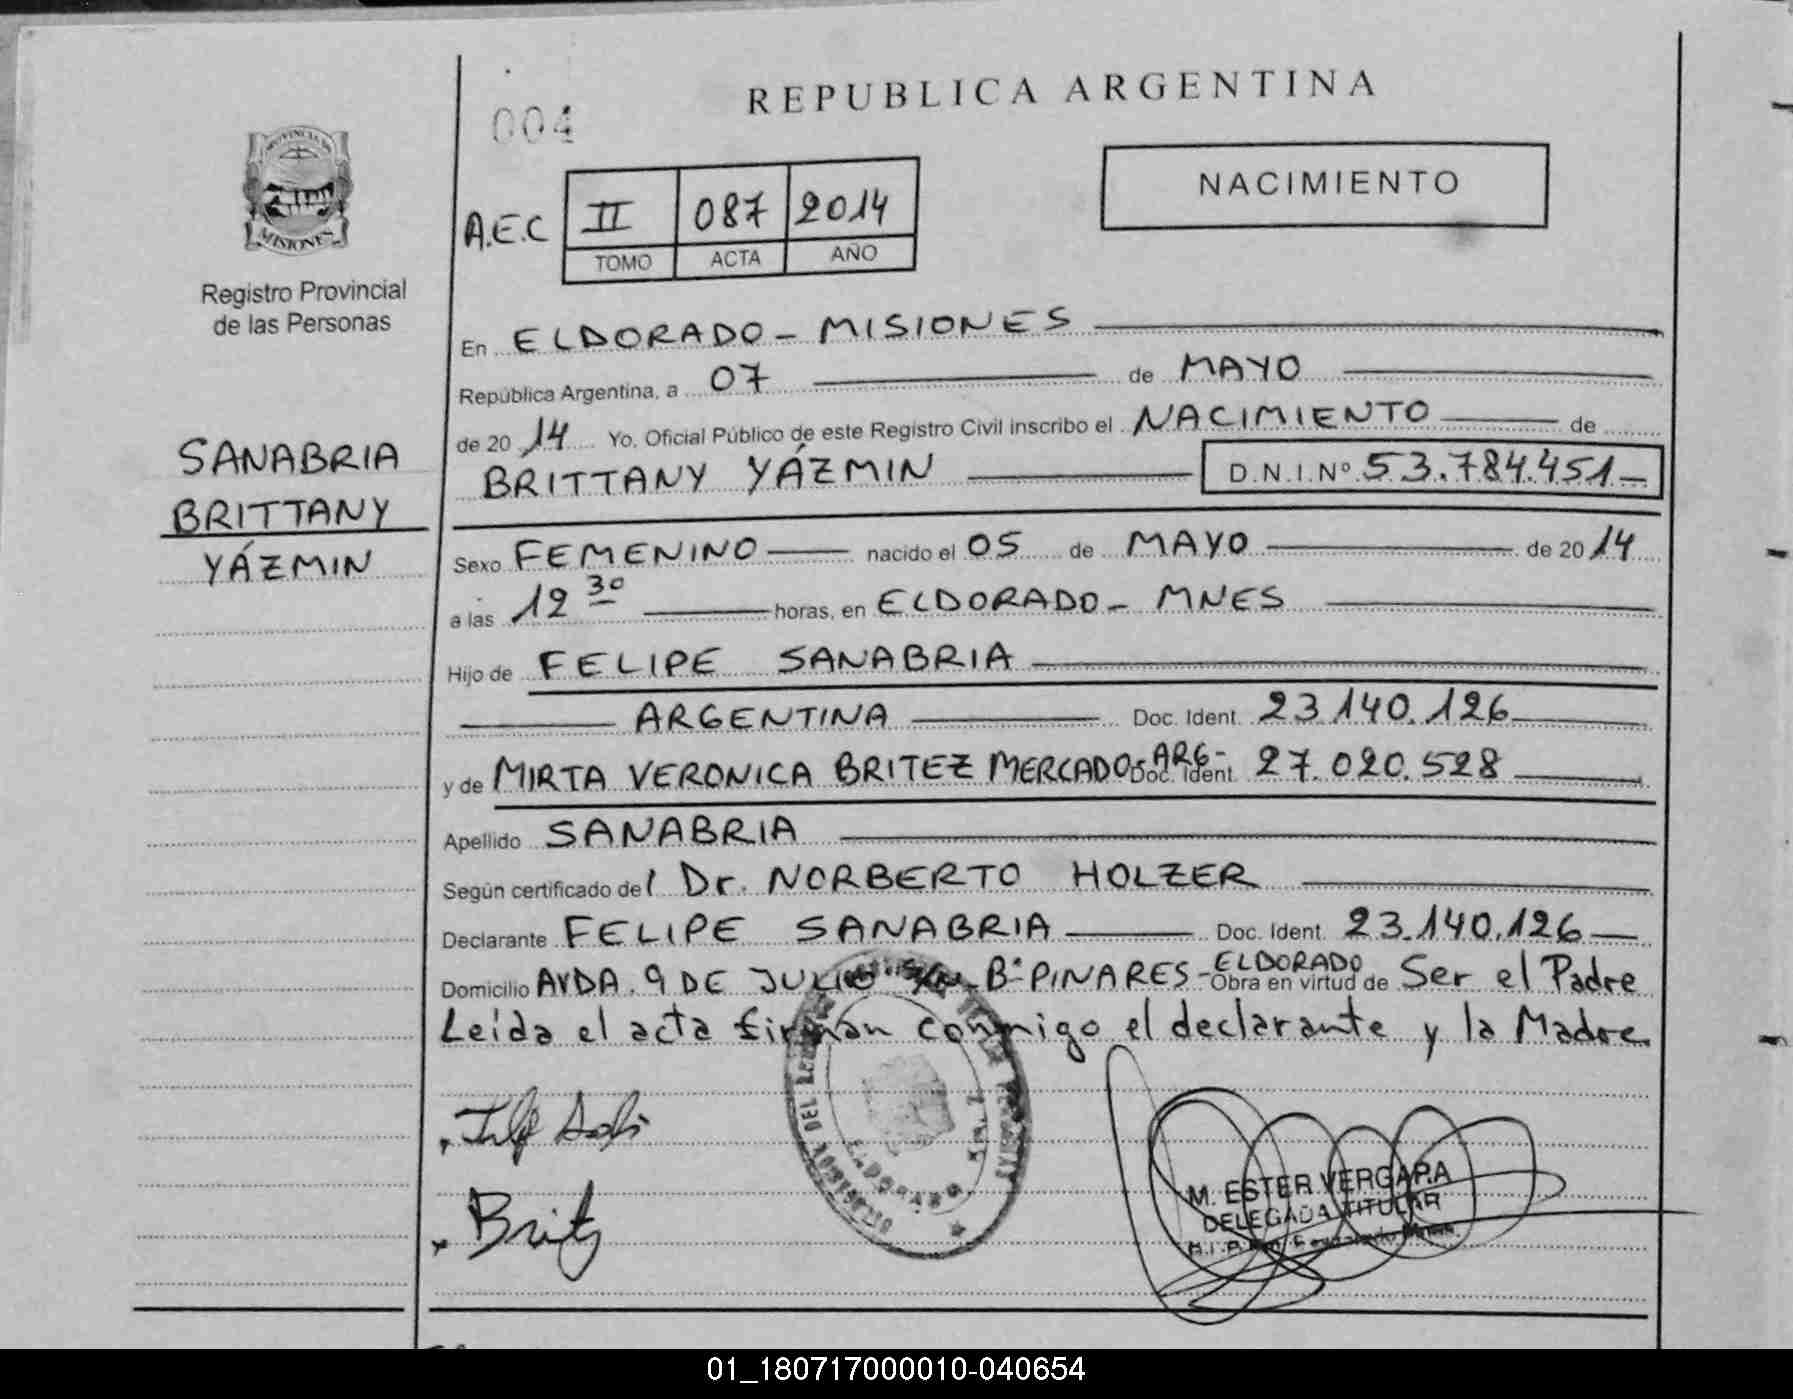 REPUBLICA ARGENTINA
004
NACIMIENTO
PROVINCIA DE
MISIONES
Registro Provincial
de las Personas
A.E.C II 087 2014
TOMO ACTA AÑO
SANABRIA
BRITTANY
YÁZMIN
En ELDORADO - MISIONES
República Argentina, a 07 de MAYO
de 20 14 Yo, Oficial Público de este Registro Civil inscribo el NACIMIENTO de
BRITTANY YÁZMIN D.N.I.Nº 53.784.451-
Sexo FEMENINO nacido el 05 de MAYO de 20 14
a las 12 30 horas, en ELDORADO - MNES
Hijo de FELIPE SANABRIA
ARGENTINA Doc. Ident. 23.140.126
y de MIRTA VERONICA BRITEZ MERCADO - ARG - Doc. Ident. 27.020.528
Apellido SANABRIA
Según certificado del Dr. NORBERTO HOLZER
Declarante FELIPE SANABRIA Doc. Ident. 23.140.126
Domicilio AVDA. 9 DE JULIO S/N - Bº PINARES - ELDORADO Obra en virtud de Ser el Padre
Leída el acta firman conmigo el declarante y la Madre.
Britz
ELDORADO
M. ESTER VERGARA
DELEGADA TITULAR
01_180717000010-040654